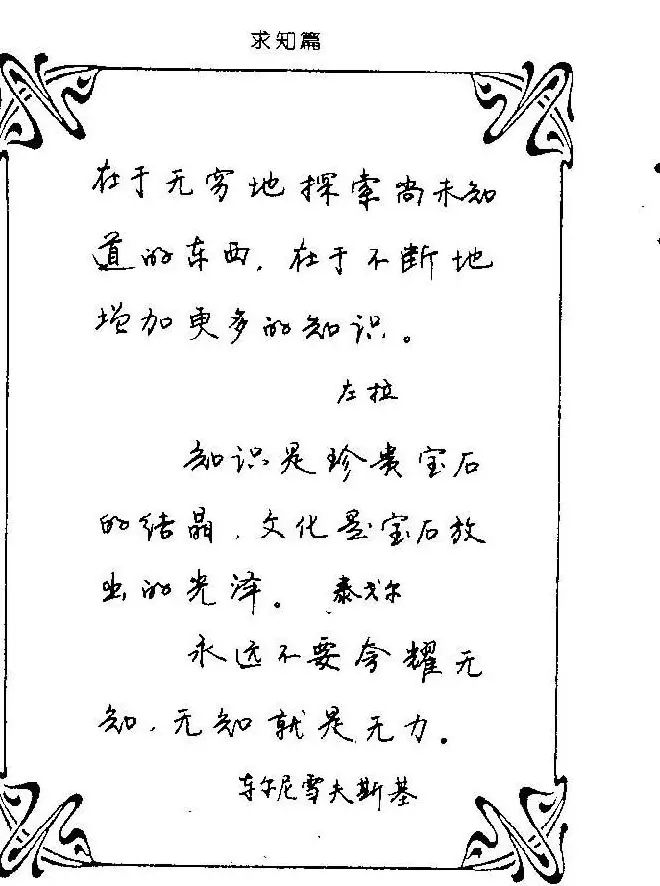 求知篇
在于无穷地探索尚未知
道的东西，在于不断地
增加更多的知识。
左拉
知识是珍贵宝石
的结晶，文化是宝石放
出的光泽。 泰戈尔
永远不要夸耀无
知，无知就是无力。
车尔尼雪夫斯基